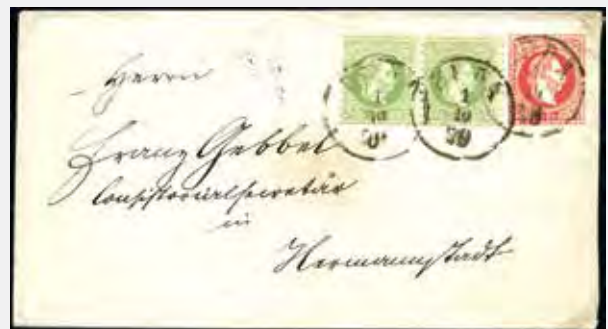 Herrn
Franz Gebbel
Consistorialsecretär
in
Hermannstadt
1
10
70